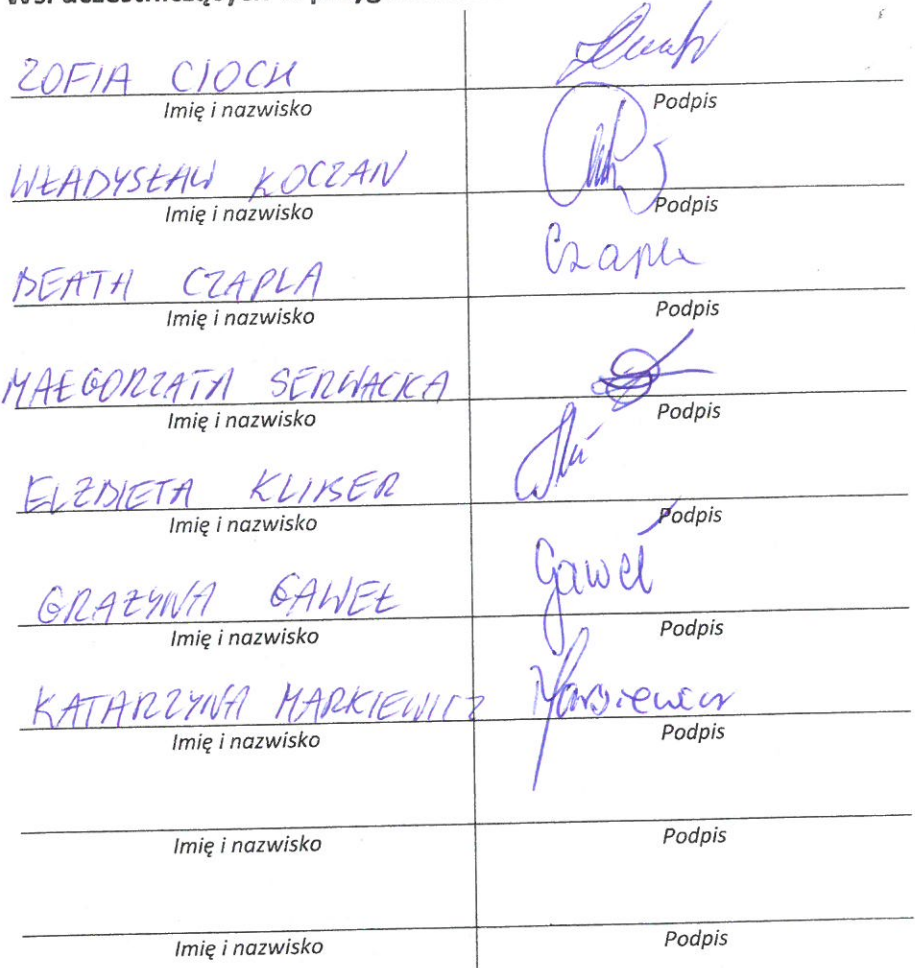 ZOFIA CIOCH
Imię i nazwisko Podpis
WŁADYSŁAW KOCZAN
Imię i nazwisko Podpis
BEATA CZAPLA Czapla
Imię i nazwisko Podpis
MAŁGORZATA SERWACKA
Imię i nazwisko Podpis
ELŻBIETA KLIBER
Imię i nazwisko Podpis
GRAŻYNA GAWEŁ Gaweł
Imię i nazwisko Podpis
KATARZYNA MARKIEWICZ Markiewicz
Imię i nazwisko Podpis
Imię i nazwisko Podpis
Imię i nazwisko Podpis